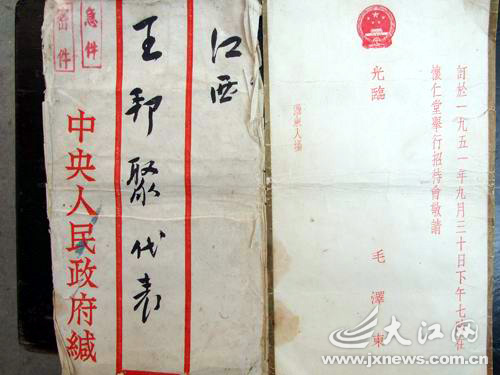 江西
王邦聚代表
急件
密件
中央人民政府緘
訂於一九五一年九月三十日下午七時在
懷仁堂舉行招待會敬請
光臨
毛澤東
憑柬入場
大江网
www.jxnews.com.cn